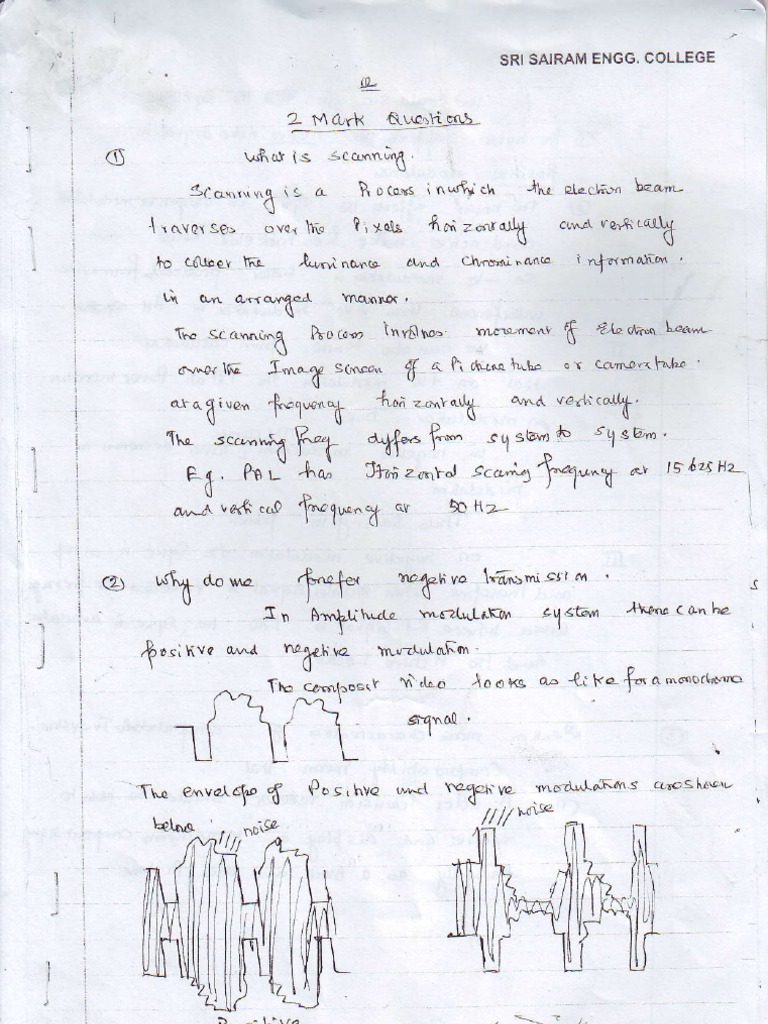 SRI SAIRAM ENGG. COLLEGE
2 Mark Questions
① What is scanning.
Scanning is a Process in which the electron beam
traverses over the Pixels horizontally and vertically
to collect the luminance and chrominance information.
in an arranged manner.
The scanning Process involves movement of Electron beam
over the Image screen of a Picture tube or camera tube.
at a given frequency horizontally and vertically.
The scanning freq dyffers from system to system.
Eg. PAL has Horizontal scaning frequency at 15625 Hz
and vertical frequency at 50 Hz
② Why do we prefer negetive transmission.
In Amplitude modulation system there can be
positive and negetive modulation.
The composit video looks as like for a monochrome
signal.
The envelope of Positive and negetive modulations are shown
below.
noise
noise
Positive